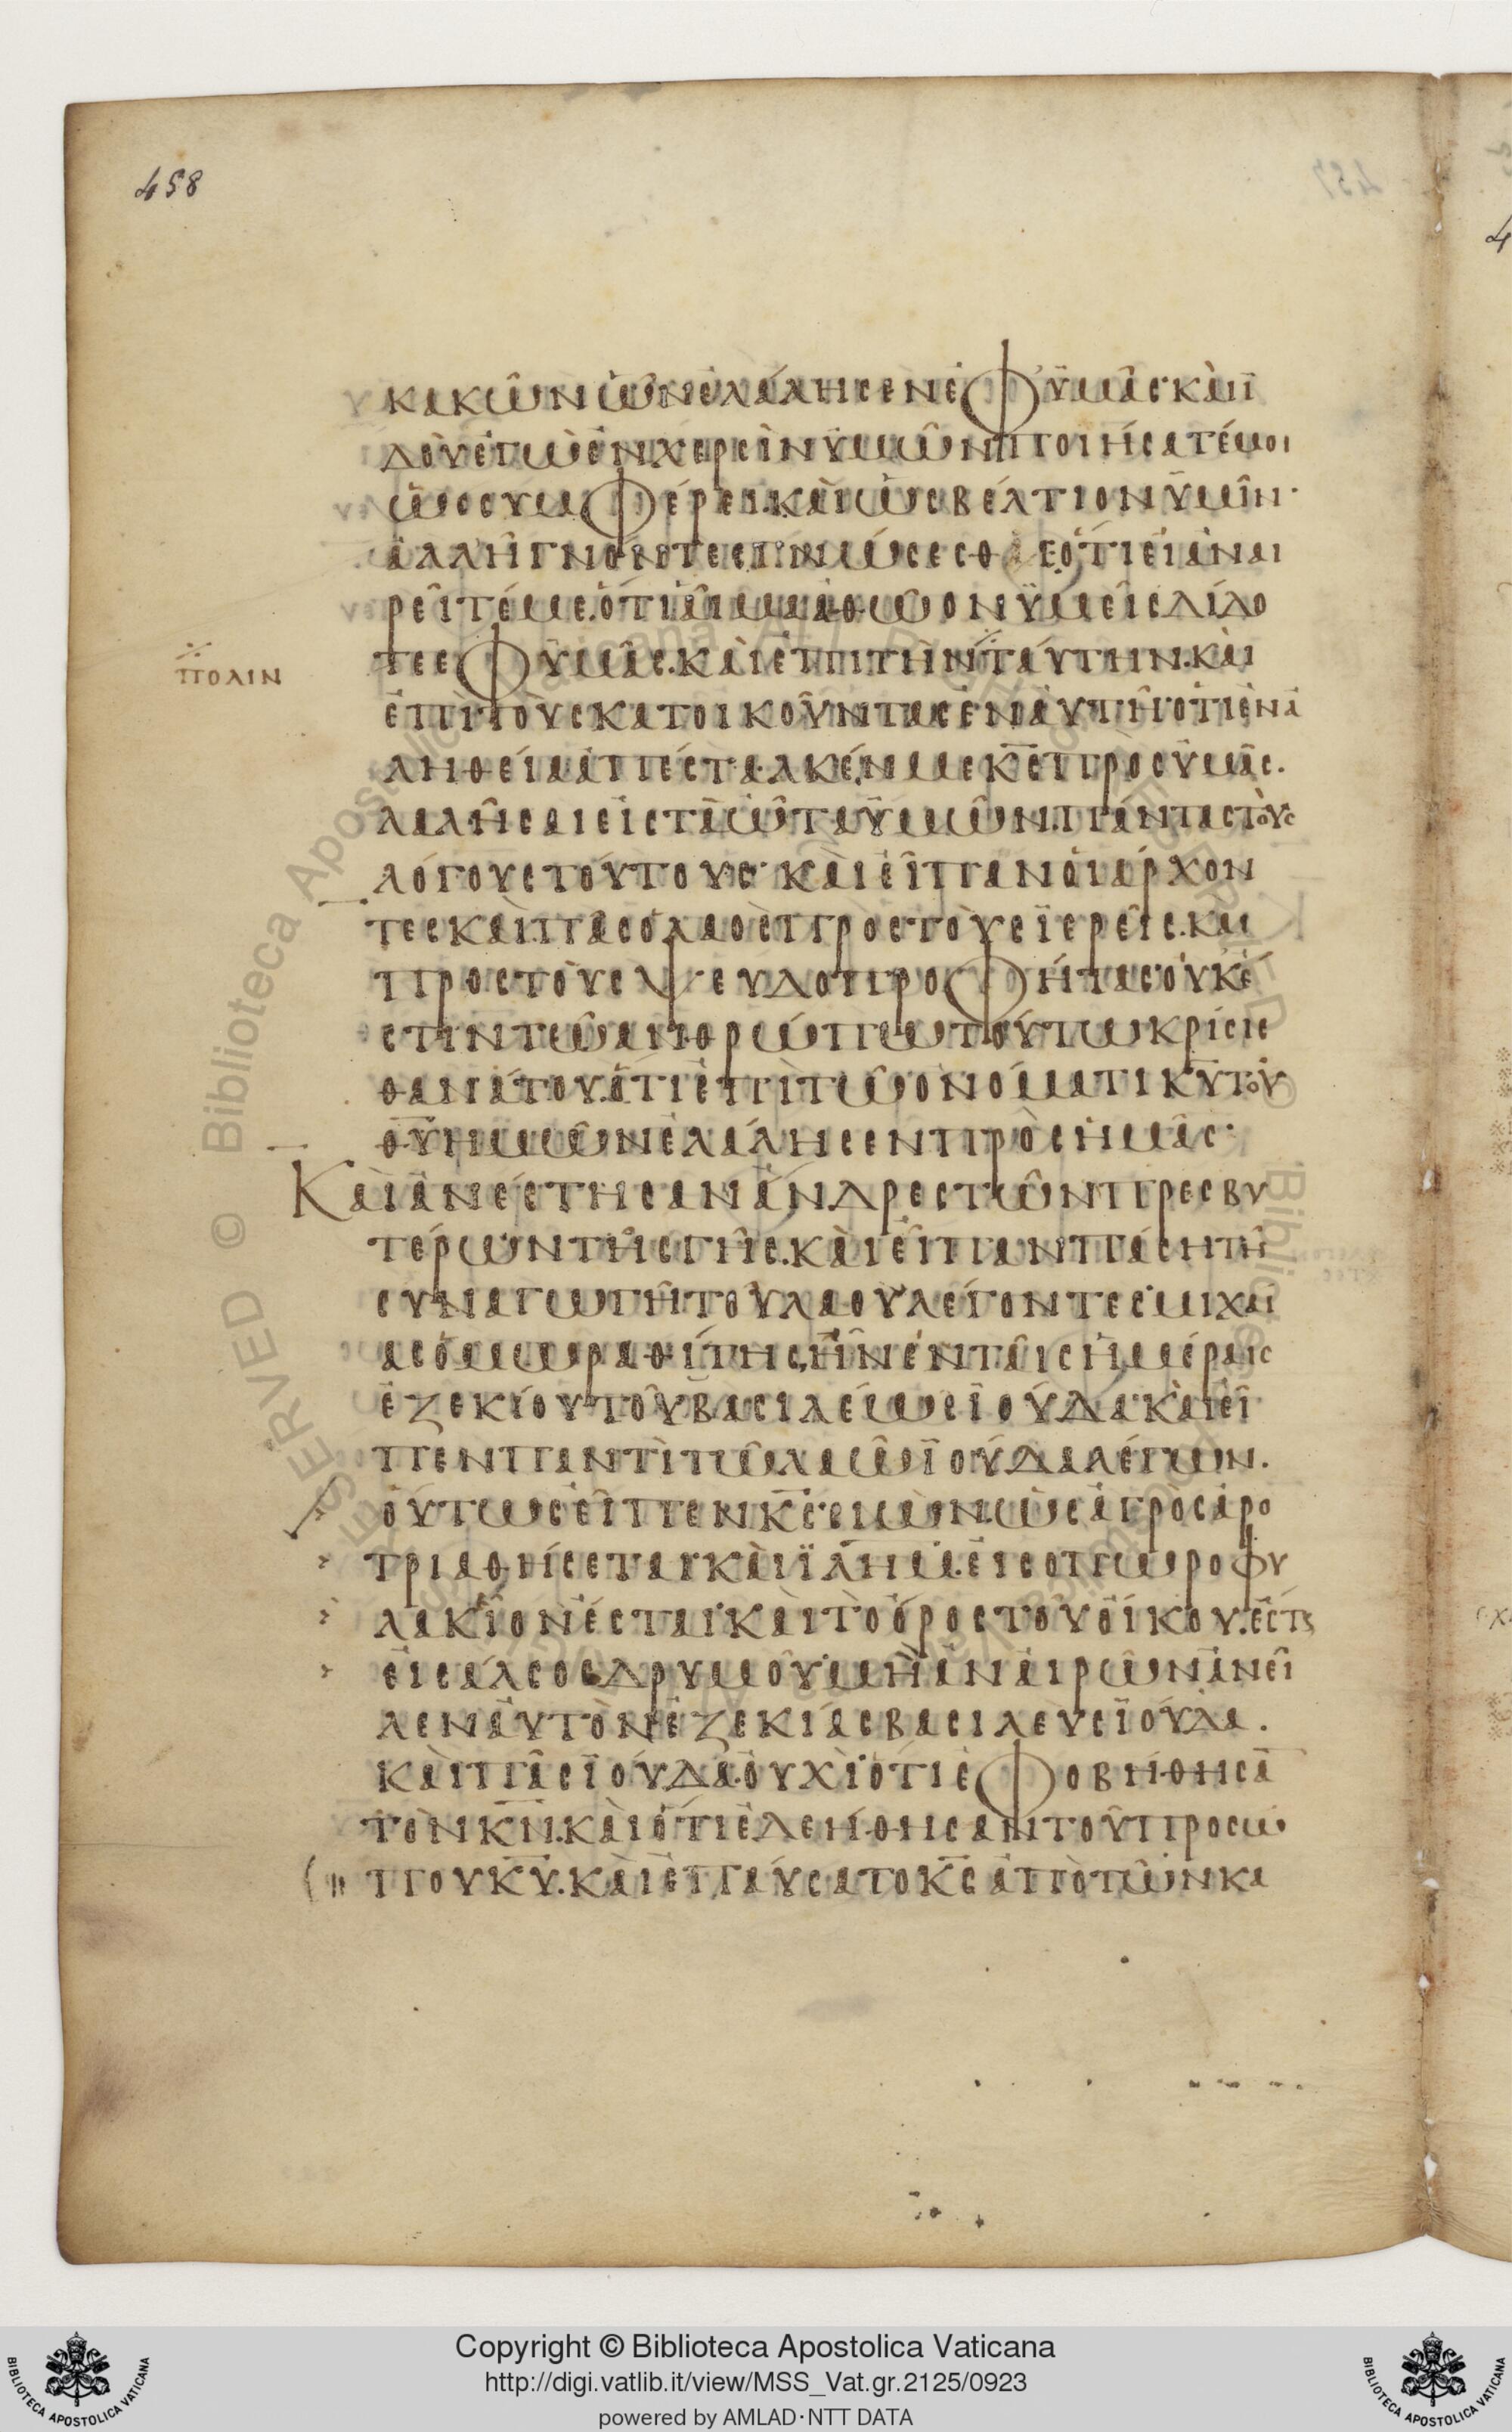 458
κακῶν ὧν ἐλάλησεν ἐφ ϋμᾶς· κὰι ϊ
δοὺ ἐγὼ ἐν χερσὶν ϋμῶν ποιήσατέ μοι
ὡς συμφέρει. κὰι ὡς βέλτιον ϋμῖν·
ἀλλ ἢ γνόντες γνώσεσθε ὅτι εἰ ἀναι
ρεῖτέ με. ὅτι αἷμα ἀθῶον ϋμεῖς δίδο
τε εφ ϋμᾶς. κὰι ἐπι τὴν ※ ταύτην. κὰι
※ πολιν
ἐπὶ τοὺς κατοικοῦντας ἐν ἀυτῆ· ὅτι ἐν ἀ
ληθείαι ἀπέσταλκέν με κ̅ς̅ πρὸς ϋμᾶς.
λαλῆσαι εἰς τὰ ὦτα ϋμῶν. πάντας τοὺς
λόγους τούτους· κὰι εἶπαν ὁι άρχον
τες κὰι πᾶς ὁ λαὸς πρὸς τοὺς ϊερεῖς. και
προς τοὺς ψευδοπροφήτας· ὀυκ έ
στιν τῶ ανθρώπω τούτω κρίσις
θανάτου. ὅτι ἐπὶ τῶ ονόματι κ̅υ̅ τοῦ
θ̅υ̅ ημῶν ἐλάλησεν πρὸς ἡμᾶς·
Κὰι ἀνέστησαν άνδρες τῶν πρεσβυ
τέρων τῆς γῆς. κὰι εἶπαν πάση τῆ
συναγωγῆ τοῦ λαοῦ λέγοντες· μιχαί
ας ὁ μωραθίτης, ἦν ἐν τᾶις ἡμέραις
ἐζεκίου τοῦ βασιλέως ϊούδα· κὰι εῖ
πεν παντὶ τῶ λαῶ ϊούδα λέγων.
ὁύτως εἶπεν κ̅ς̅· σιὼν. ὡς ἀγρὸς ἀρο
τριαθήσεται· κὰι ϊ̅λ̅η̅μ̅. εἰς οπωροφυ
λακῖον έσται· κὰι τὸ όρος τοῦ οίκου. έστ
εἰς άλσος δρυμοῦ· μὴ ἀναιρῶν ἀνεῖ
λεν ἀυτὸν ἐζεκίας βασιλεὺς ϊούδα.
κὰι πᾶς ϊούδα· ὀυχὶ ὅτι ἐφοβήθησα̅
τὸν κ̅ν̅. κὰι ὅτι ἐδεήθησαν τοῦ προσώ
που κ̅υ̅. κὰι ἐπάυσατο κ̅ς̅ ἀπὸ τῶν κα
Copyright © Biblioteca Apostolica Vaticana
http://digi.vatlib.it/view/MSS_Vat.gr.2125/0923
powered by AMLAD·NTT DATA
BIBLIOTECA APOSTOLICA VATICANA
BIBLIOTECA APOSTOLICA VATICANA